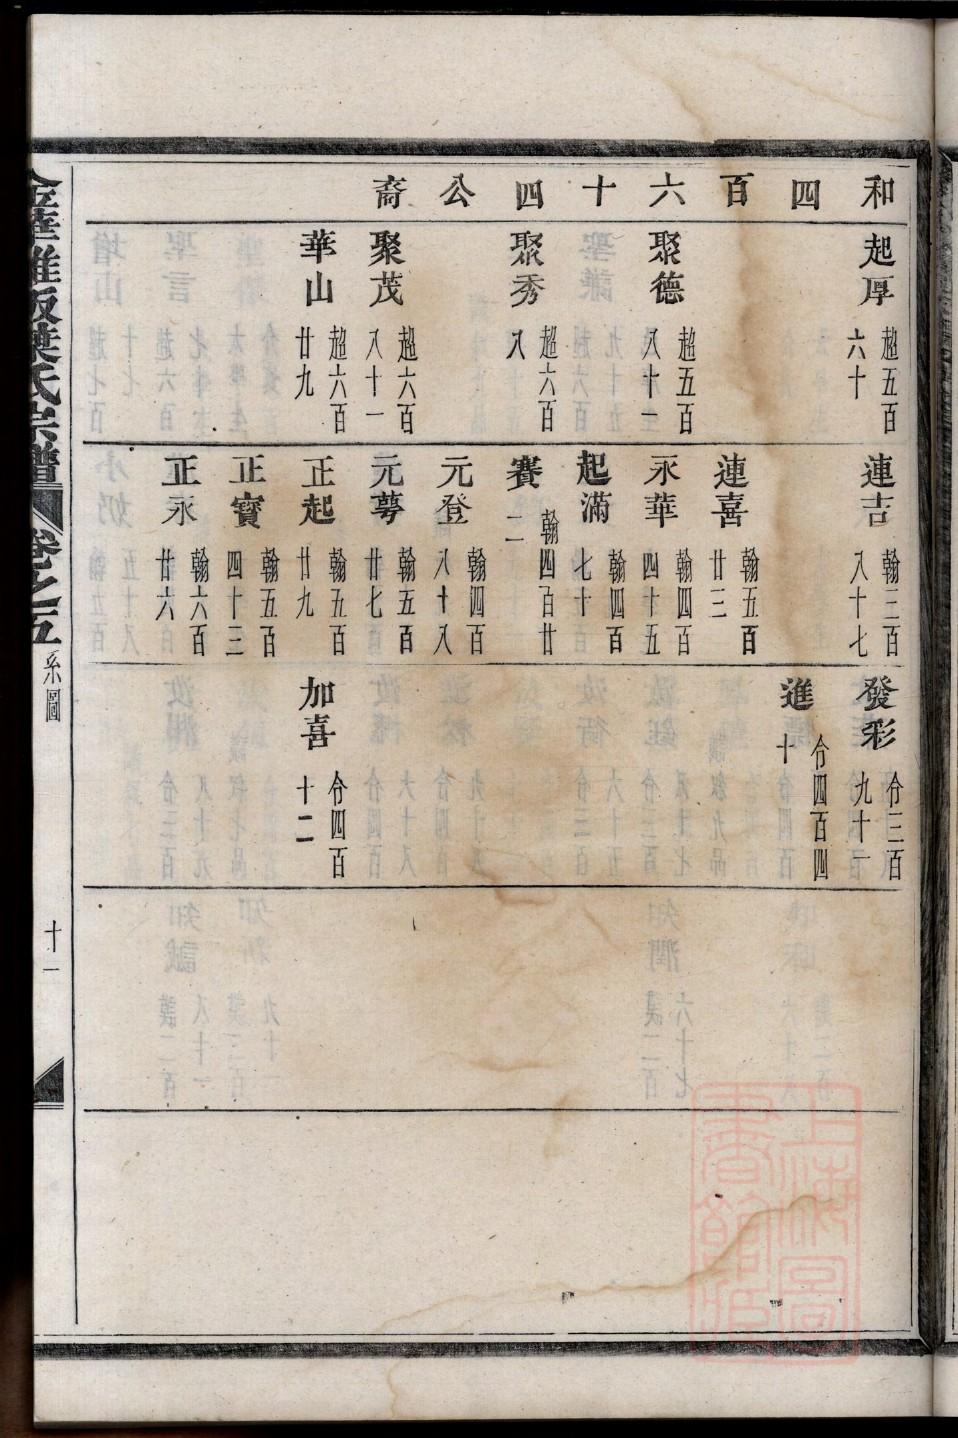 和四百六十四公裔
起厚 超五百六十
聚德 超五百八十一
聚秀 超六百八
聚茂 超六百八十一
華山 超六百廿九
連吉 翰三百八十七
連喜 翰五百廿三
永華 翰四百四十五
起滿 翰四百七十
賽二 翰四百廿
元登 翰四百八十八
元萼 翰五百廿七
正起 翰五百廿九
正寳 翰五百四十三
正永 翰六百廿六
發彩 令三百九十一
進 令四百四十
加喜 令四百十二
金華雅畈葉氏宗譜 卷之五 系圖 十一
上海圖書館藏